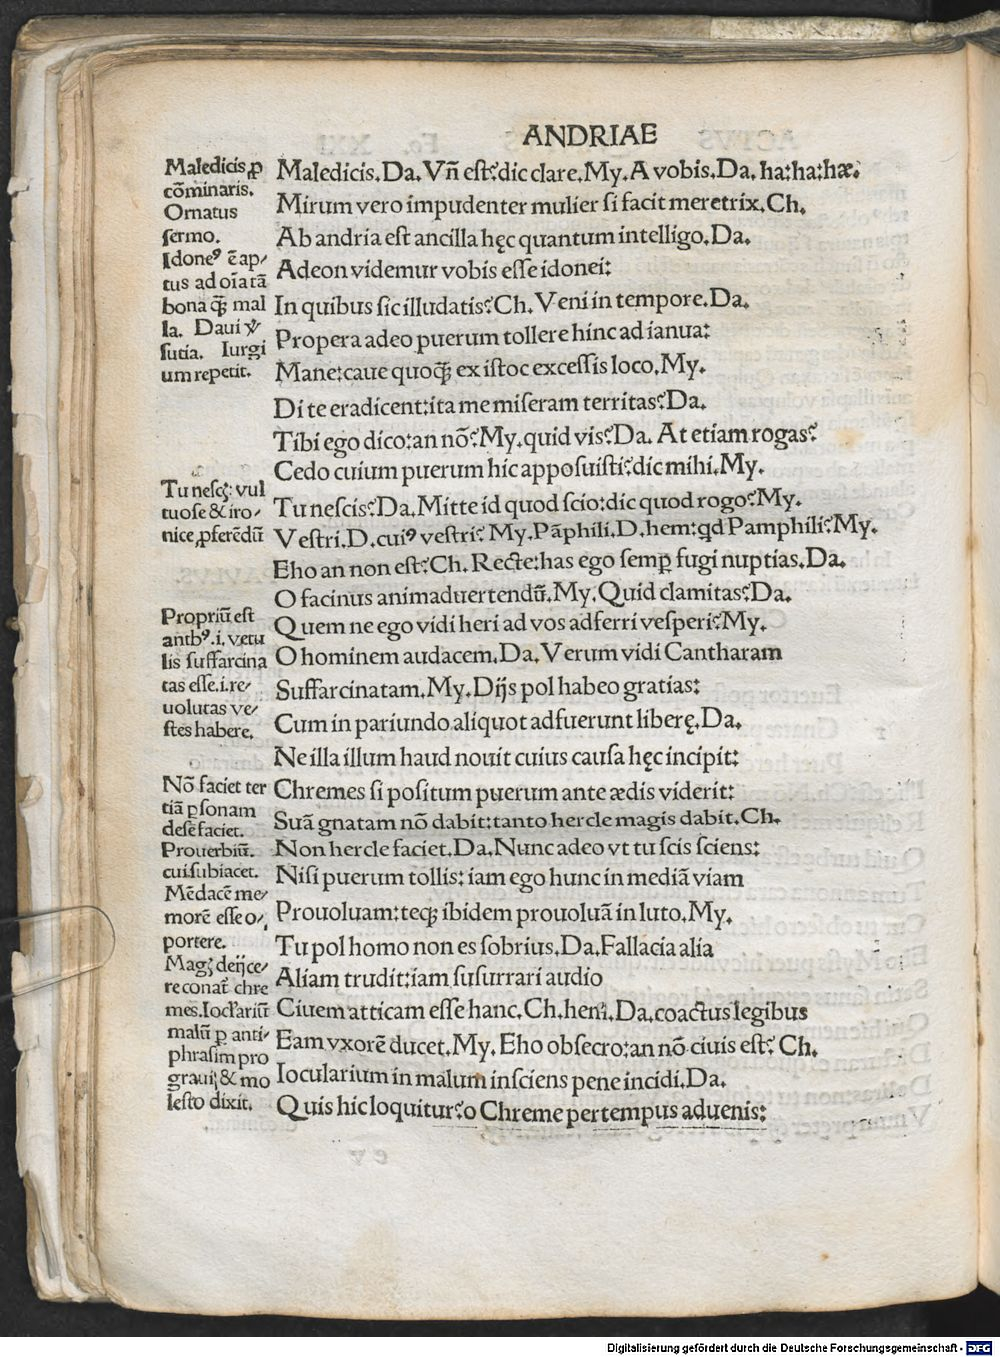 ANDRIAE
Maledicis ꝓ
cõminaris.
Ornatus
sermo.
Idoneꝰ ẽ ap/
tus ad oĩa tã
bona ꝙ̃ mal
la. Daui
sutia. Iurgi
um repetit.
Tu nescꝭ: vul
tuose & iro/
nice ꝓferẽdũ
Propriũ est
antbꝰ .i. vetu
lis suffarcina
tas esse .i. re/
uolutas ve/
stes habere.
Nõ faciet ter
tiã ꝑsonam
desẽ faciet.
Prouerbiũ.
cui subiacet.
Mẽdacẽ me/
morẽ esse o/
portere.
Magꝭ deijce/
re conat̃ chre
mes. Ioclariũ
malũ ꝑ anti/
phrasim pro
graui & mo
lesto dixit.
Maledicis. Da. Vñ est? dic clare. My. A vobis. Da. ha: ha: hæ.
Mirum vero impudenter mulier si facit meretrix. Ch.
Ab andria est ancilla hęc quantum intelligo. Da.
Adeon videmur vobis esse idonei:
In quibus sic illudatis? Ch. Veni in tempore. Da.
Propera adeo puerum tollere hinc ad ianua:
Mane: caue quoꝗ̃ ex istoc excessis loco. My.
Di te eradicent: ita me miseram territas? Da.
Tibi ego dico: an nõ? My. quid vis? Da. At etiam rogas?
Cedo cuium puerum hic apposuisti? dic mihi. My.
Tu nescis? Da. Mitte id quod scio: dic quod rogo? My.
Vestri. D. cuiꝰ vestri? My. Pãphili. D. hem: qd Pamphili? My.
Eho an non est? Ch. Recte: has ego semꝑ fugi nuptias. Da.
O facinus animaduertendũ. My. Quid clamitas? Da.
Quem ne ego vidi heri ad vos adferri vesperi? My.
O hominem audacem. Da. Verum vidi Cantharam
Suffarcinatam. My. Dijs pol habeo gratias:
Cum in pariundo aliquot adfuerunt liberę. Da.
Ne illa illum haud nouit cuius causa hęc incipit:
Chremes si positum puerum ante ædis viderit:
Suã gnatam nõ dabit: tanto hercle magis dabit. Ch.
Non hercle faciet. Da. Nunc adeo vt tu scis sciens:
Nisi puerum tollis: iam ego hunc in mediã viam
Prouoluam: teqꝫ ibidem prouoluã in luto. My.
Tu pol homo non es sobrius. Da. Fallacia alia
Aliam trudit: iam susurrari audio
Ciuem atticam esse hanc. Ch. hem. Da. coactus legibus
Eam vxorẽ ducet. My. Eho obsecro: an nõ ciuis est? Ch.
Iocularium in malum insciens pene incidi. Da.
Quis hic loquitur? o Chreme per tempus aduenis:
Digitalisierung gefördert durch die Deutsche Forschungsgemeinschaft - DFG